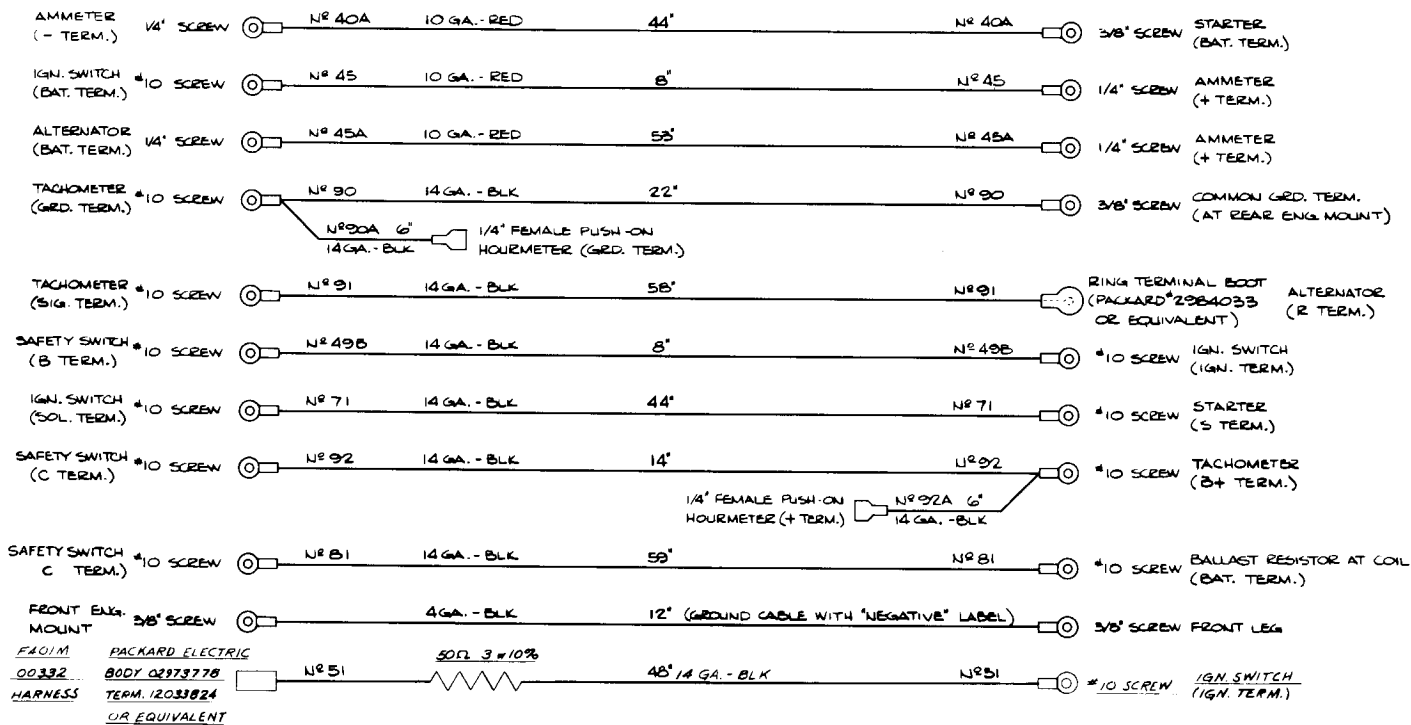 AMMETER
(- TERM.)
1/4" SCREW
Nº 40A
10 GA.-RED
44"
Nº 40A
3/8" SCREW
STARTER
(BAT. TERM.)
IGN. SWITCH
(BAT. TERM.)
#10 SCREW
Nº 45
10 GA.-RED
8"
Nº 45
1/4" SCREW
AMMETER
(+ TERM.)
ALTERNATOR
(BAT. TERM.)
1/4" SCREW
Nº 45A
10 GA.-RED
53"
Nº 45A
1/4" SCREW
AMMETER
(+ TERM.)
TACHOMETER
(GRD. TERM.)
#10 SCREW
Nº 90
14 GA.-BLK
22"
Nº 90
3/8" SCREW
COMMON GRD. TERM.
(AT REAR ENG MOUNT)
Nº90A 6"
14 GA.-BLK
1/4" FEMALE PUSH-ON
HOURMETER (GRD. TERM.)
TACHOMETER
(SIG. TERM.)
#10 SCREW
Nº 91
14 GA.-BLK
58"
Nº 91
RING TERMINAL BOOT
(PACKARD #2984033
OR EQUIVALENT)
ALTERNATOR
(R TERM.)
SAFETY SWITCH
(B TERM.)
#10 SCREW
Nº 49B
14 GA.-BLK
8"
Nº 49B
#10 SCREW
IGN. SWITCH
(IGN. TERM.)
IGN. SWITCH
(SOL. TERM.)
#10 SCREW
Nº 71
14 GA.-BLK
44"
Nº 71
#10 SCREW
STARTER
(S TERM.)
SAFETY SWITCH
(C TERM.)
#10 SCREW
Nº 92
14 GA.-BLK
14"
Nº 92
#10 SCREW
TACHOMETER
(B+ TERM.)
1/4" FEMALE PUSH-ON
HOURMETER (+ TERM.)
Nº 92A 6"
14 GA.-BLK
SAFETY SWITCH
C TERM.)
#10 SCREW
Nº 81
14 GA.-BLK
59"
Nº 81
#10 SCREW
BALLAST RESISTOR AT COIL
(BAT. TERM.)
FRONT ENG.
MOUNT
3/8" SCREW
4 GA.-BLK
12" (GROUND CABLE WITH "NEGATIVE" LABEL)
3/8" SCREW
FRONT LEG
00332
HARNESS
PACKARD ELECTRIC
BODY 02973778
TERM. 12033824
OR EQUIVALENT
Nº 51
50Ω 3 10%
48" 14 GA.-BLK
Nº 51
#10 SCREW
IGN. SWITCH
(IGN. TERM.)